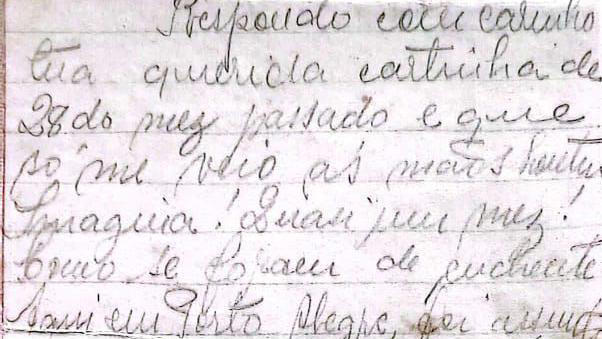 Respondo com carinho
tua querida cartinha de
28 do mez passado e que
só me veio ás mãos hontem
Imagina! Quasi um mez!
Como se foram de enchente
Aqui em Porto Alegre, foi